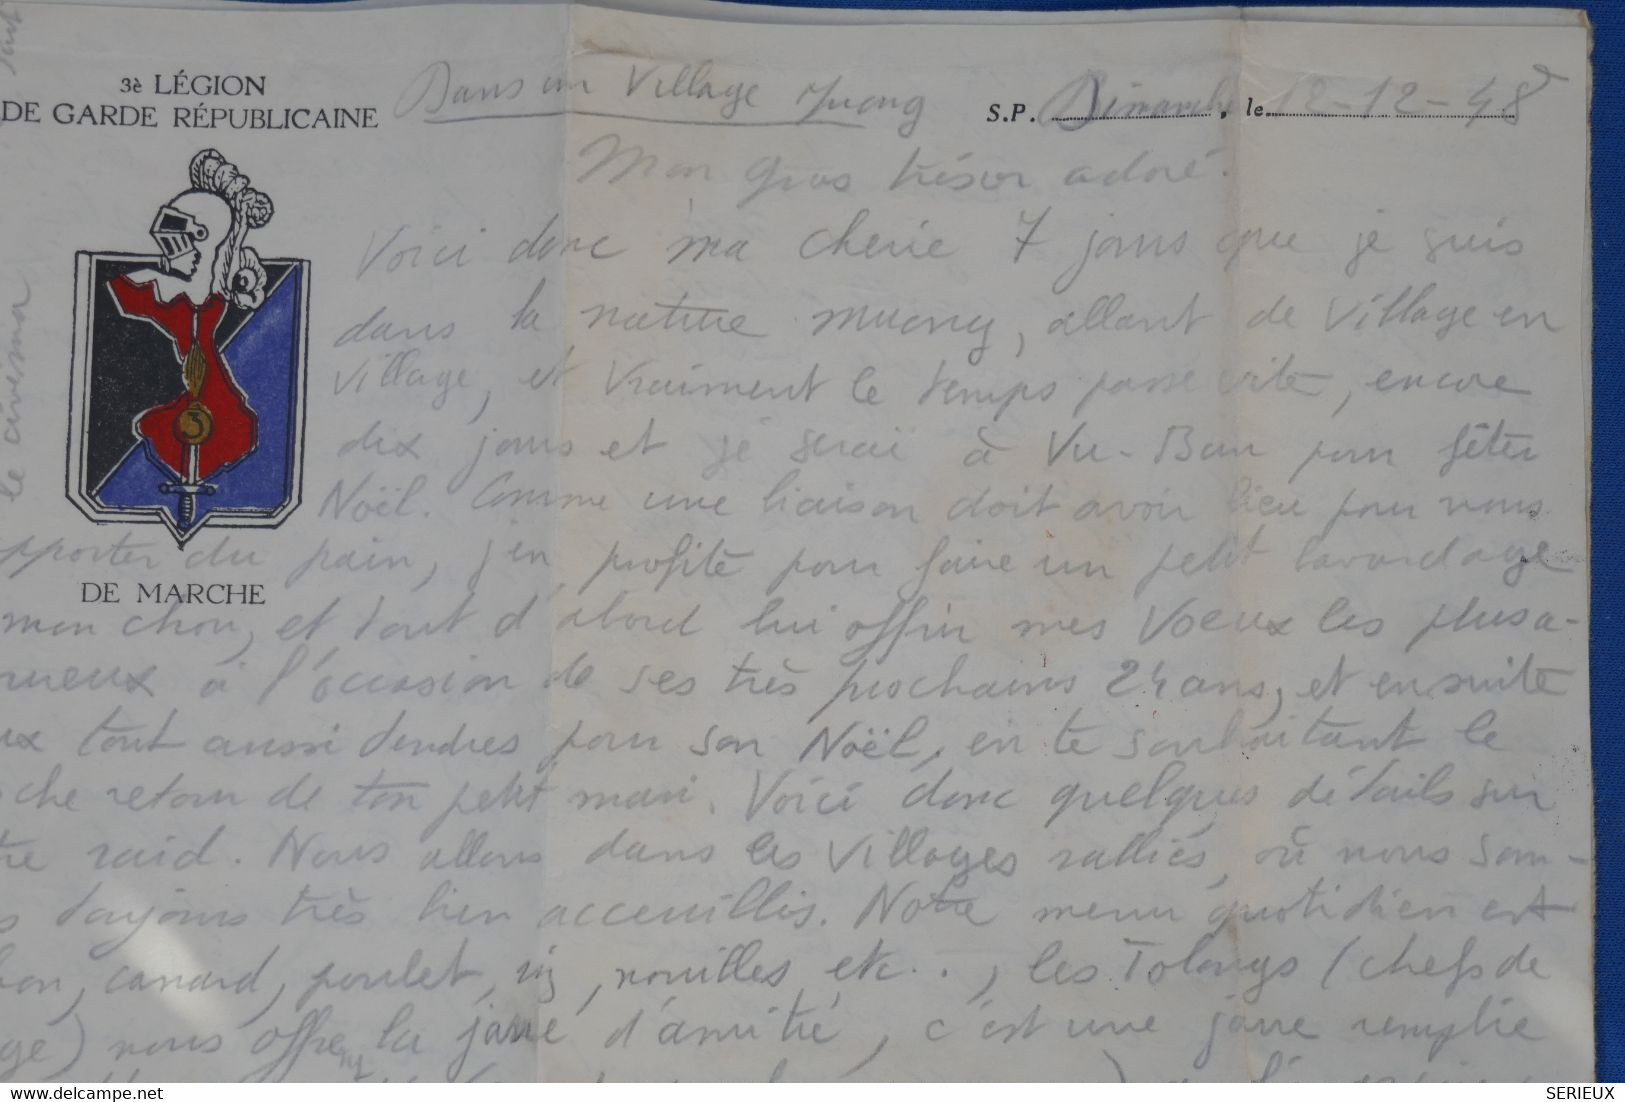 3è LÉGION
DE GARDE RÉPUBLICAINE
3
DE MARCHE
Dans un Village Muong
S.P. Dimanche, le 12-12-48
Mon gros trésor adoré.
Voici donc ma cherie 7 jours que je suis
dans la nature muong, allant de village en
village, et vraiment le temps passe vite, encore
dix jours et je serai à Vu-Ban pour fêter
Noël. Comme une liaison doit avoir lieu pour nous
pporter du pain, j'en profite pour faire un petit bavardage
mon chou, et tout d'abord lui offrir mes Voeux les plus a-
reux à l'occasion de ses très prochains 24 ans, et ensuite
ux tout aussi tendres pour son Noël, en te souhaitant le
che retour de ton petit mari. Voici donc quelques détails sur
re raid. Nous allons dans les villages ralliés, où nous som-
s toujours très bien acceuillis. Notre menu quotidien est
bon, canard, poulet, riz, nouilles etc.., les Tolangs (chefs de
ge) nous offrent la jarre d'amitié, c'est une jarre remplie
le civisma
SERIEUX